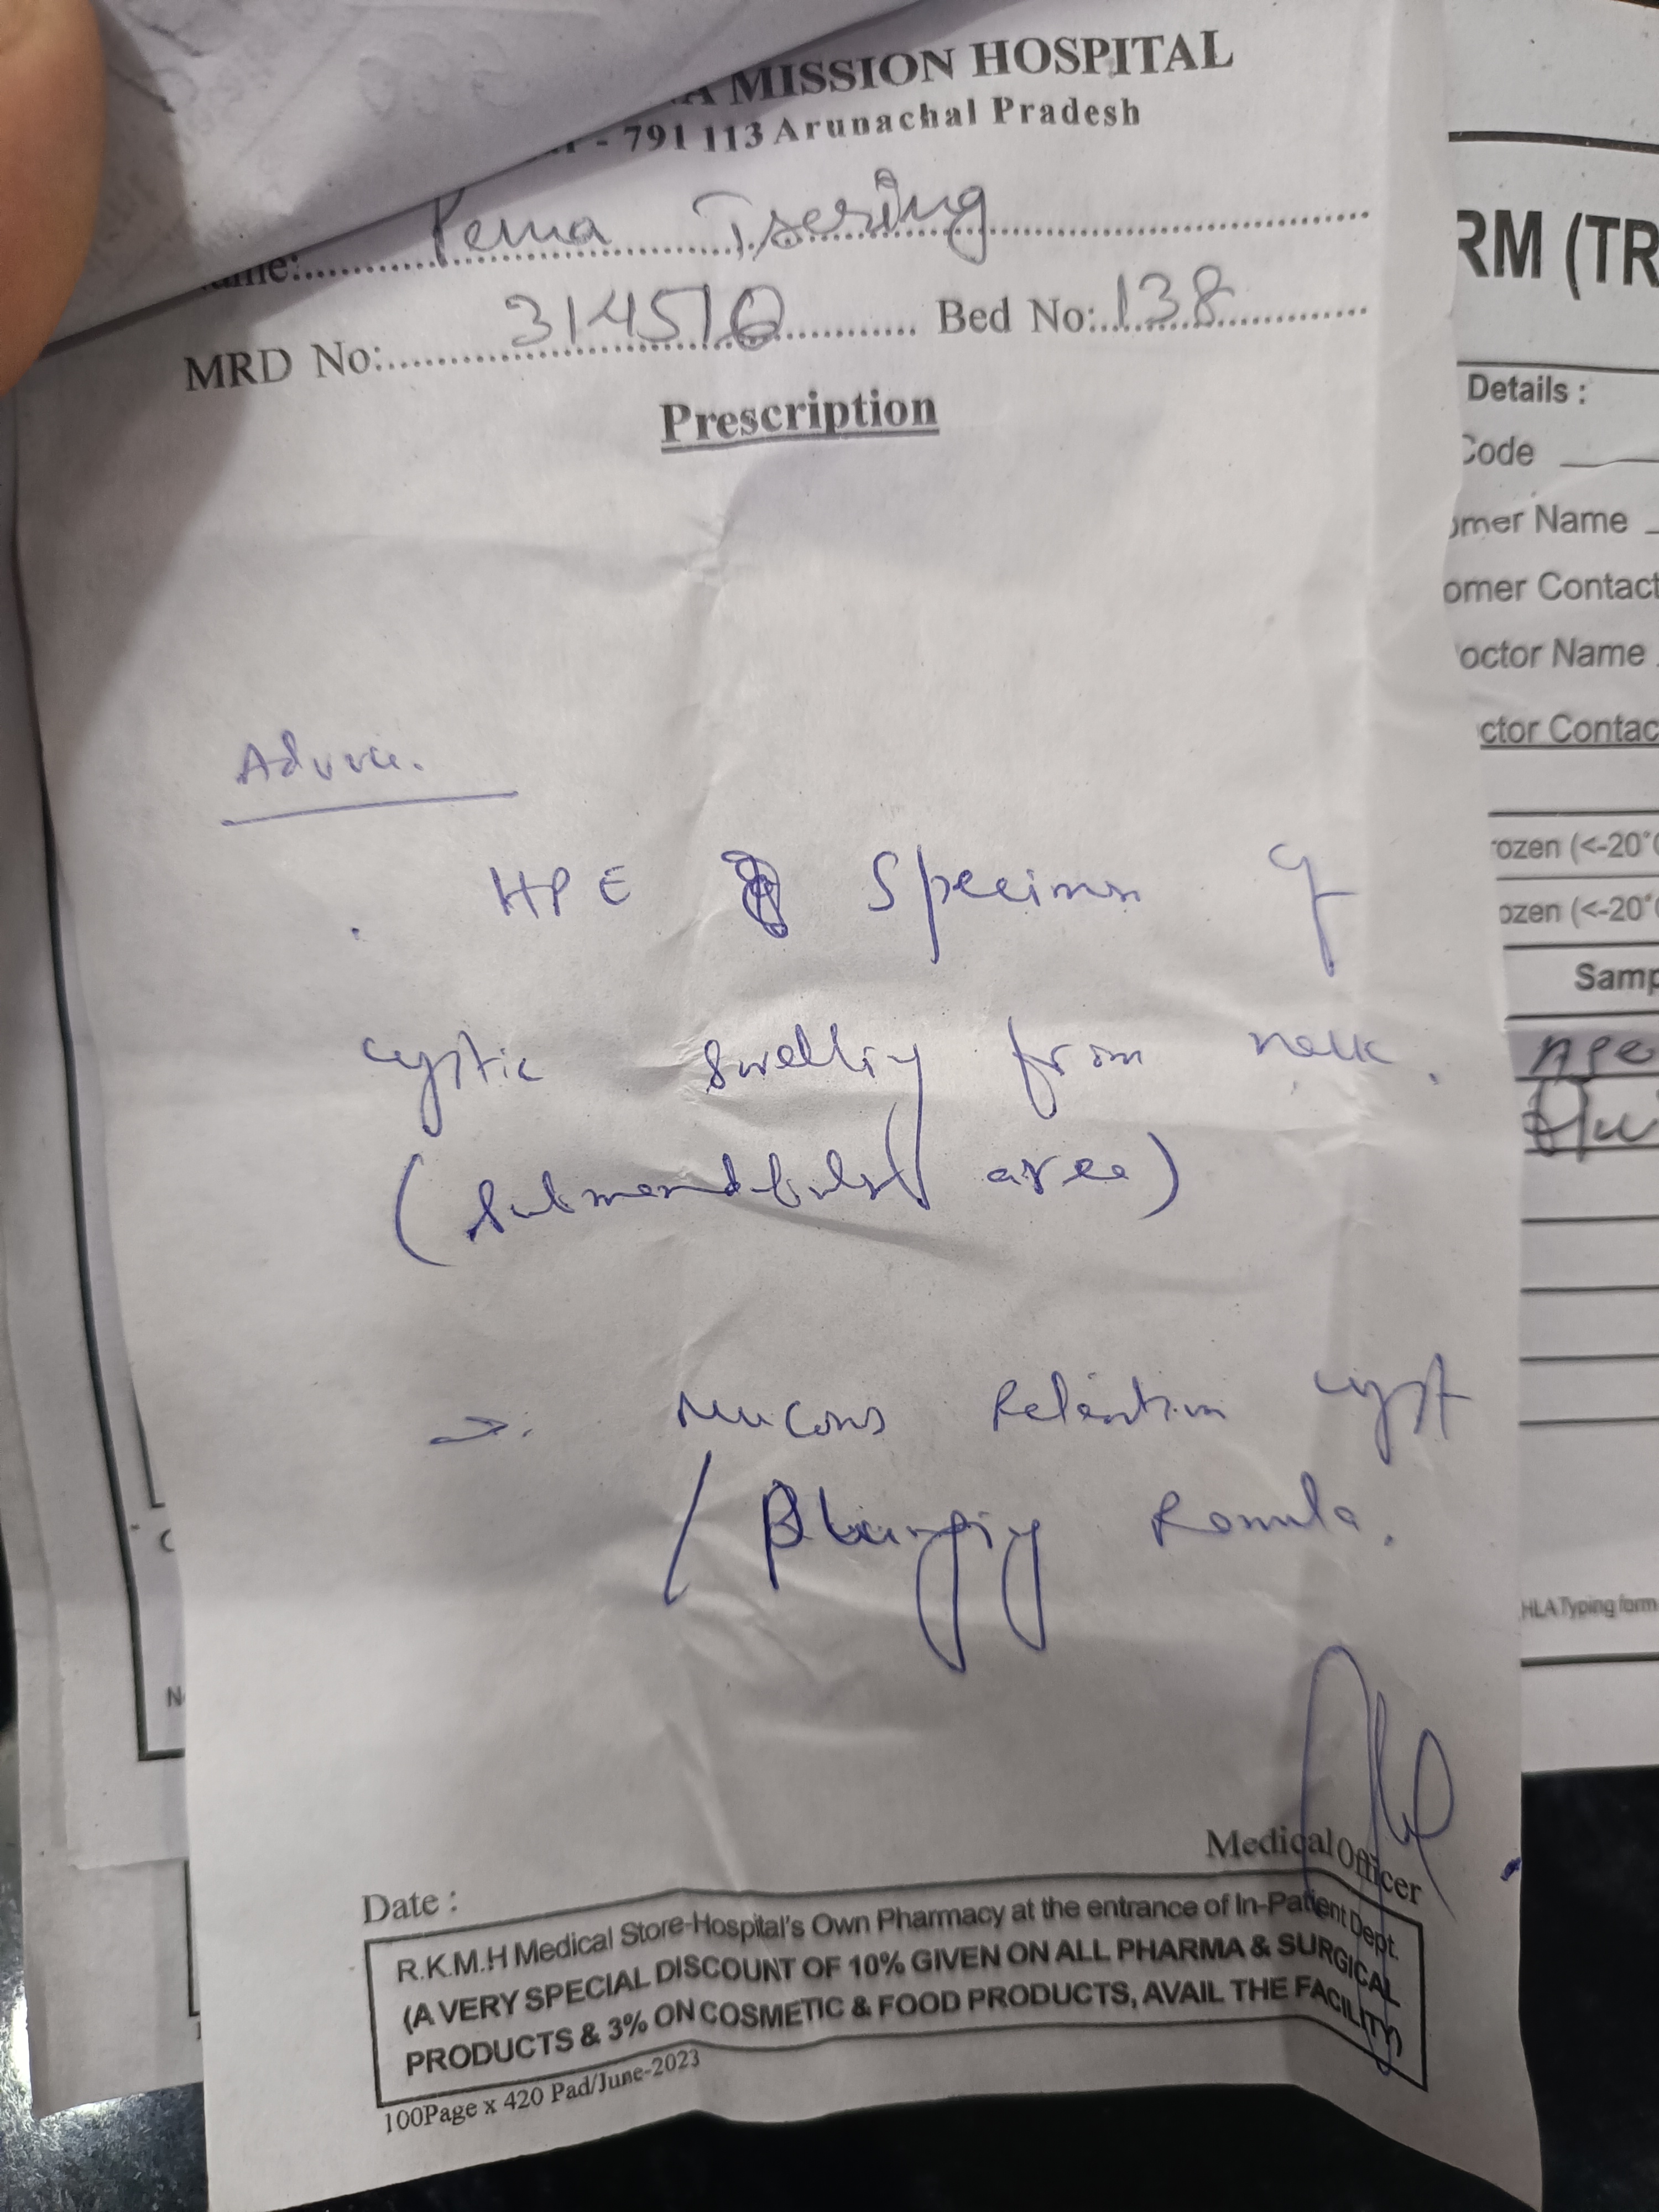 A MISSION HOSPITAL
- 791 113 Arunachal Pradesh
Name: Pema Tsering
MRD No: 314510 Bed No: 138
Prescription
Advice.
HPE Specimen of
cystic swelling from neck.
(Submandibular area)
→. Mucous Retention cyst
/ Plunging Ranula.
Medical Officer
Date :
R.K.M.H Medical Store-Hospital's Own Pharmacy at the entrance of In-Patient Dept.
(A VERY SPECIAL DISCOUNT OF 10% GIVEN ON ALL PHARMA & SURGICAL
PRODUCTS & 3% ON COSMETIC & FOOD PRODUCTS, AVAIL THE FACILITY)
100Page x 420 Pad/June-2023
RM (TR
Details :
Code
omer Name
omer Contact
octor Name
ctor Contac
rozen (<-20°C
ozen (<-20°C
Samp
HPE
HLA Typing form